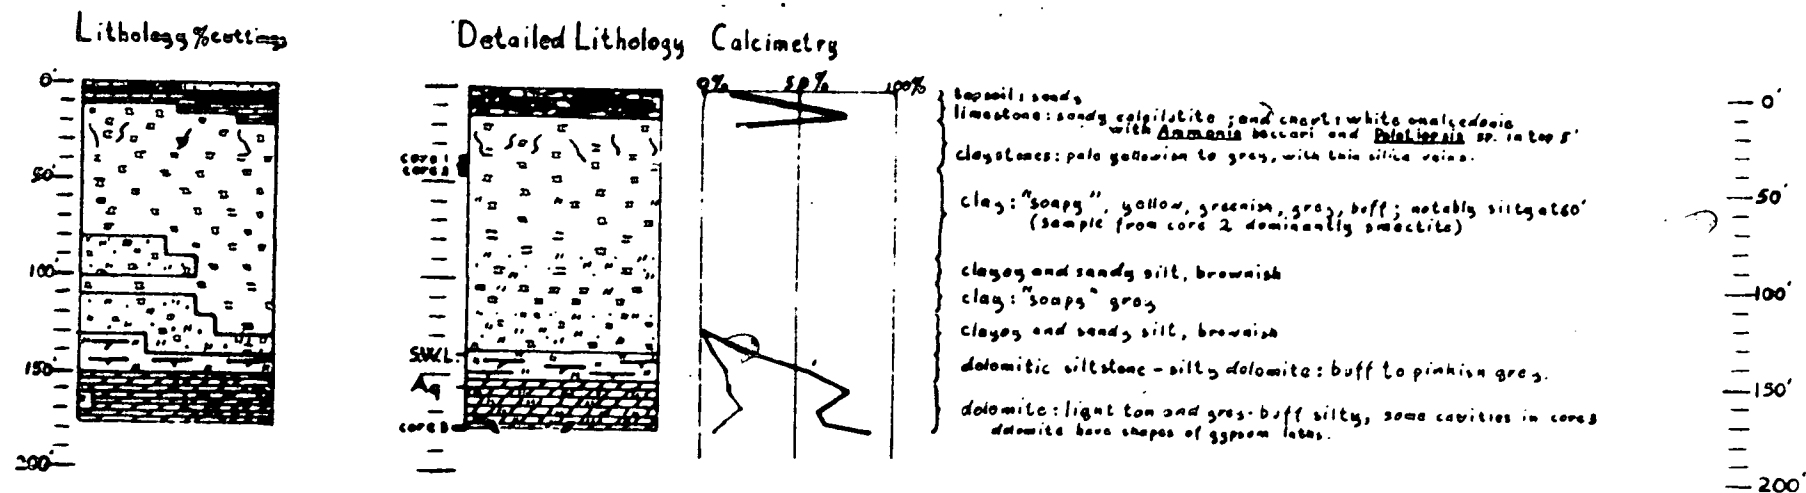 Lithology % cuttings
Detailed Lithology
Calcimetry
0'
50'
100'
150'
200'
core 1
core 2
S.W.L
Aq
core 3
0%
50%
100%
topsoil: sandy
limestone: sandy calcilutite; and chert: white chalcedonic
with Ammonia beccari and sp. in top 5'
claystones: pale yellowish to grey, with thin silica veins.
clay: "soapy", yellow, greenish, grey, buff; notably silty at 60'
(sample from core 2 dominantly smectite)
clayey and sandy silt, brownish
clay: "soapy" grey
clayey and sandy silt, brownish
dolomitic siltstone - silty dolomite: buff to pinkish grey.
dolomite: light tan and grey-buff silty, some cavities in core 3
dolomite have shapes of gypsum laths.
0'
50'
100'
150'
200'